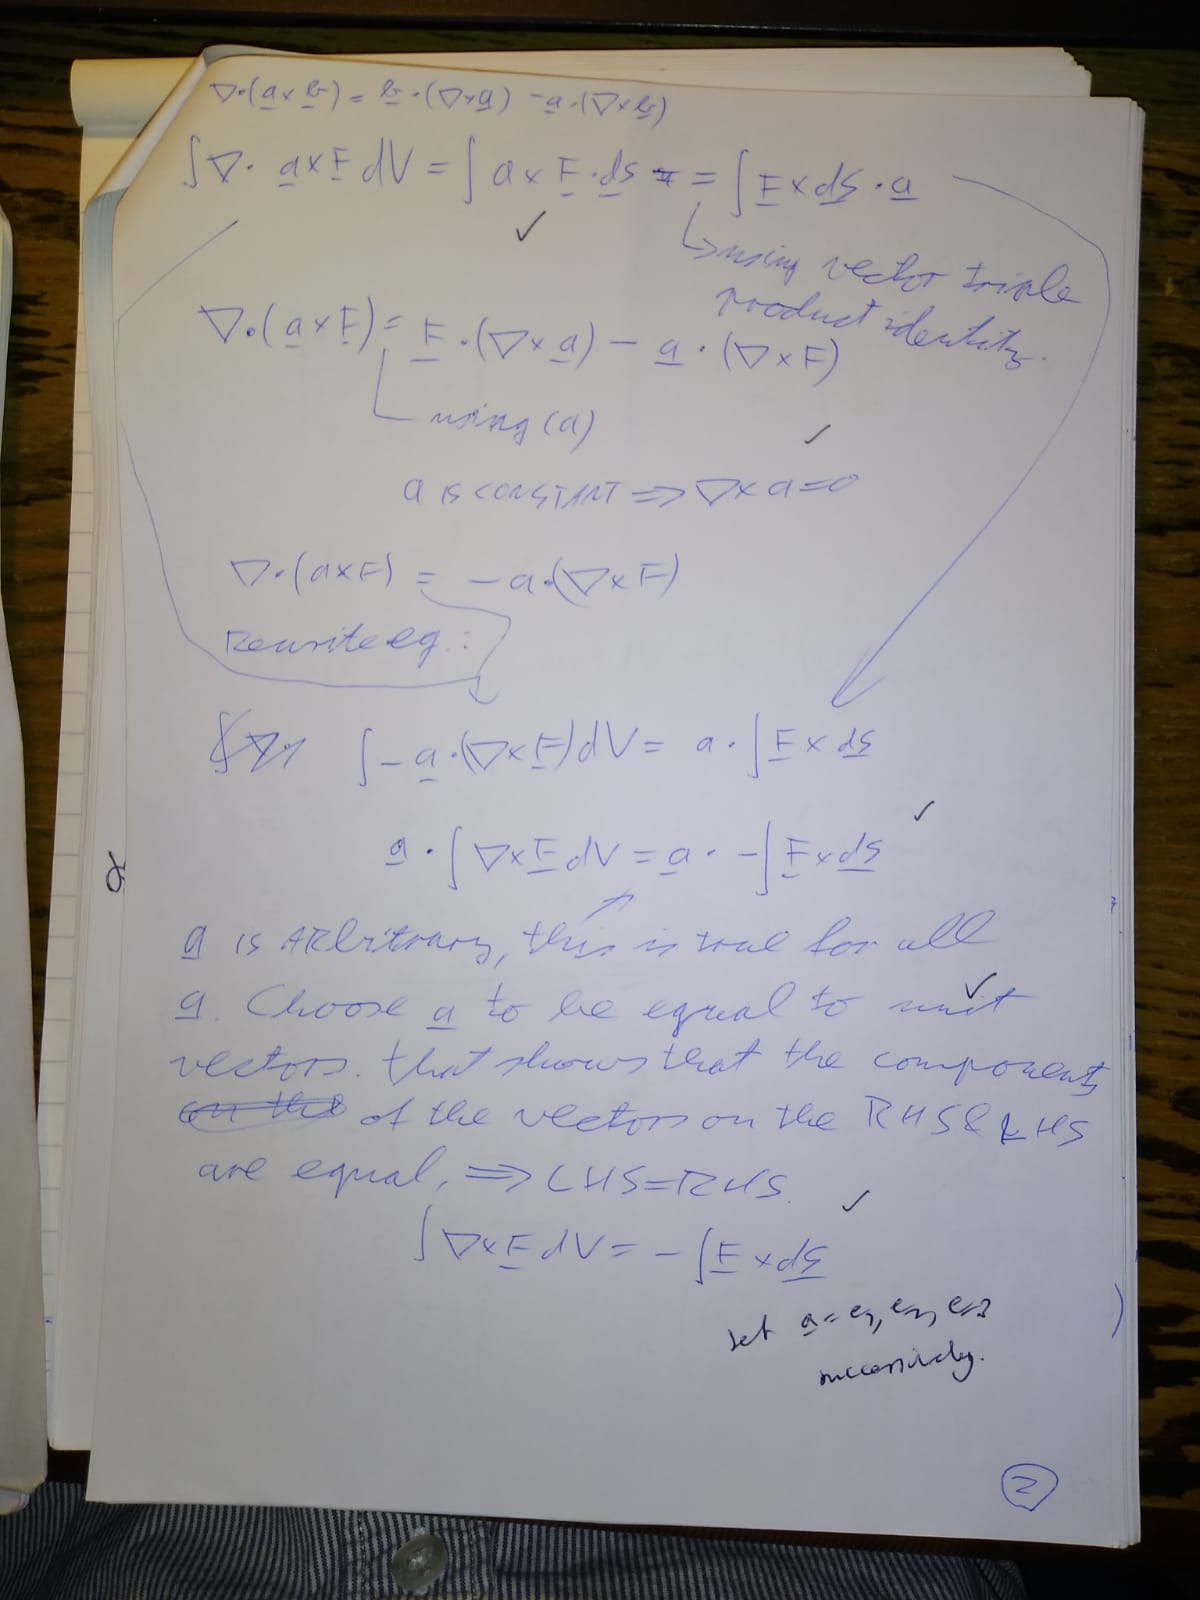 ∇·(a × b) = b·(∇×a) − a·(∇×b)
∫∇· a×F dV = ∫ a×F·dS = ∫F×dS·a
✓
↳ using vector triple
product identity.
∇·(a×F) = F·(∇×a) − a·(∇×F)
using (a)
✓
a is CONSTANT ⇒ ∇×a=0
∇·(a×F) = −a·(∇×F)
Rewrite eq.:
∫−a·(∇×F)dV = a·∫F×dS
✓
a·∫∇×F dV = a·−∫F×dS
a is ARbitrary, this is true for all
a. Choose a to be equal to unit
✓
vectors. that shows that the components
on the of the vectors on the RHS & LHS
are equal, ⇒ LHS=RHS.
✓
∫∇×F dV = −∫F×dS
set a = e1, e2, e3
successively.
2